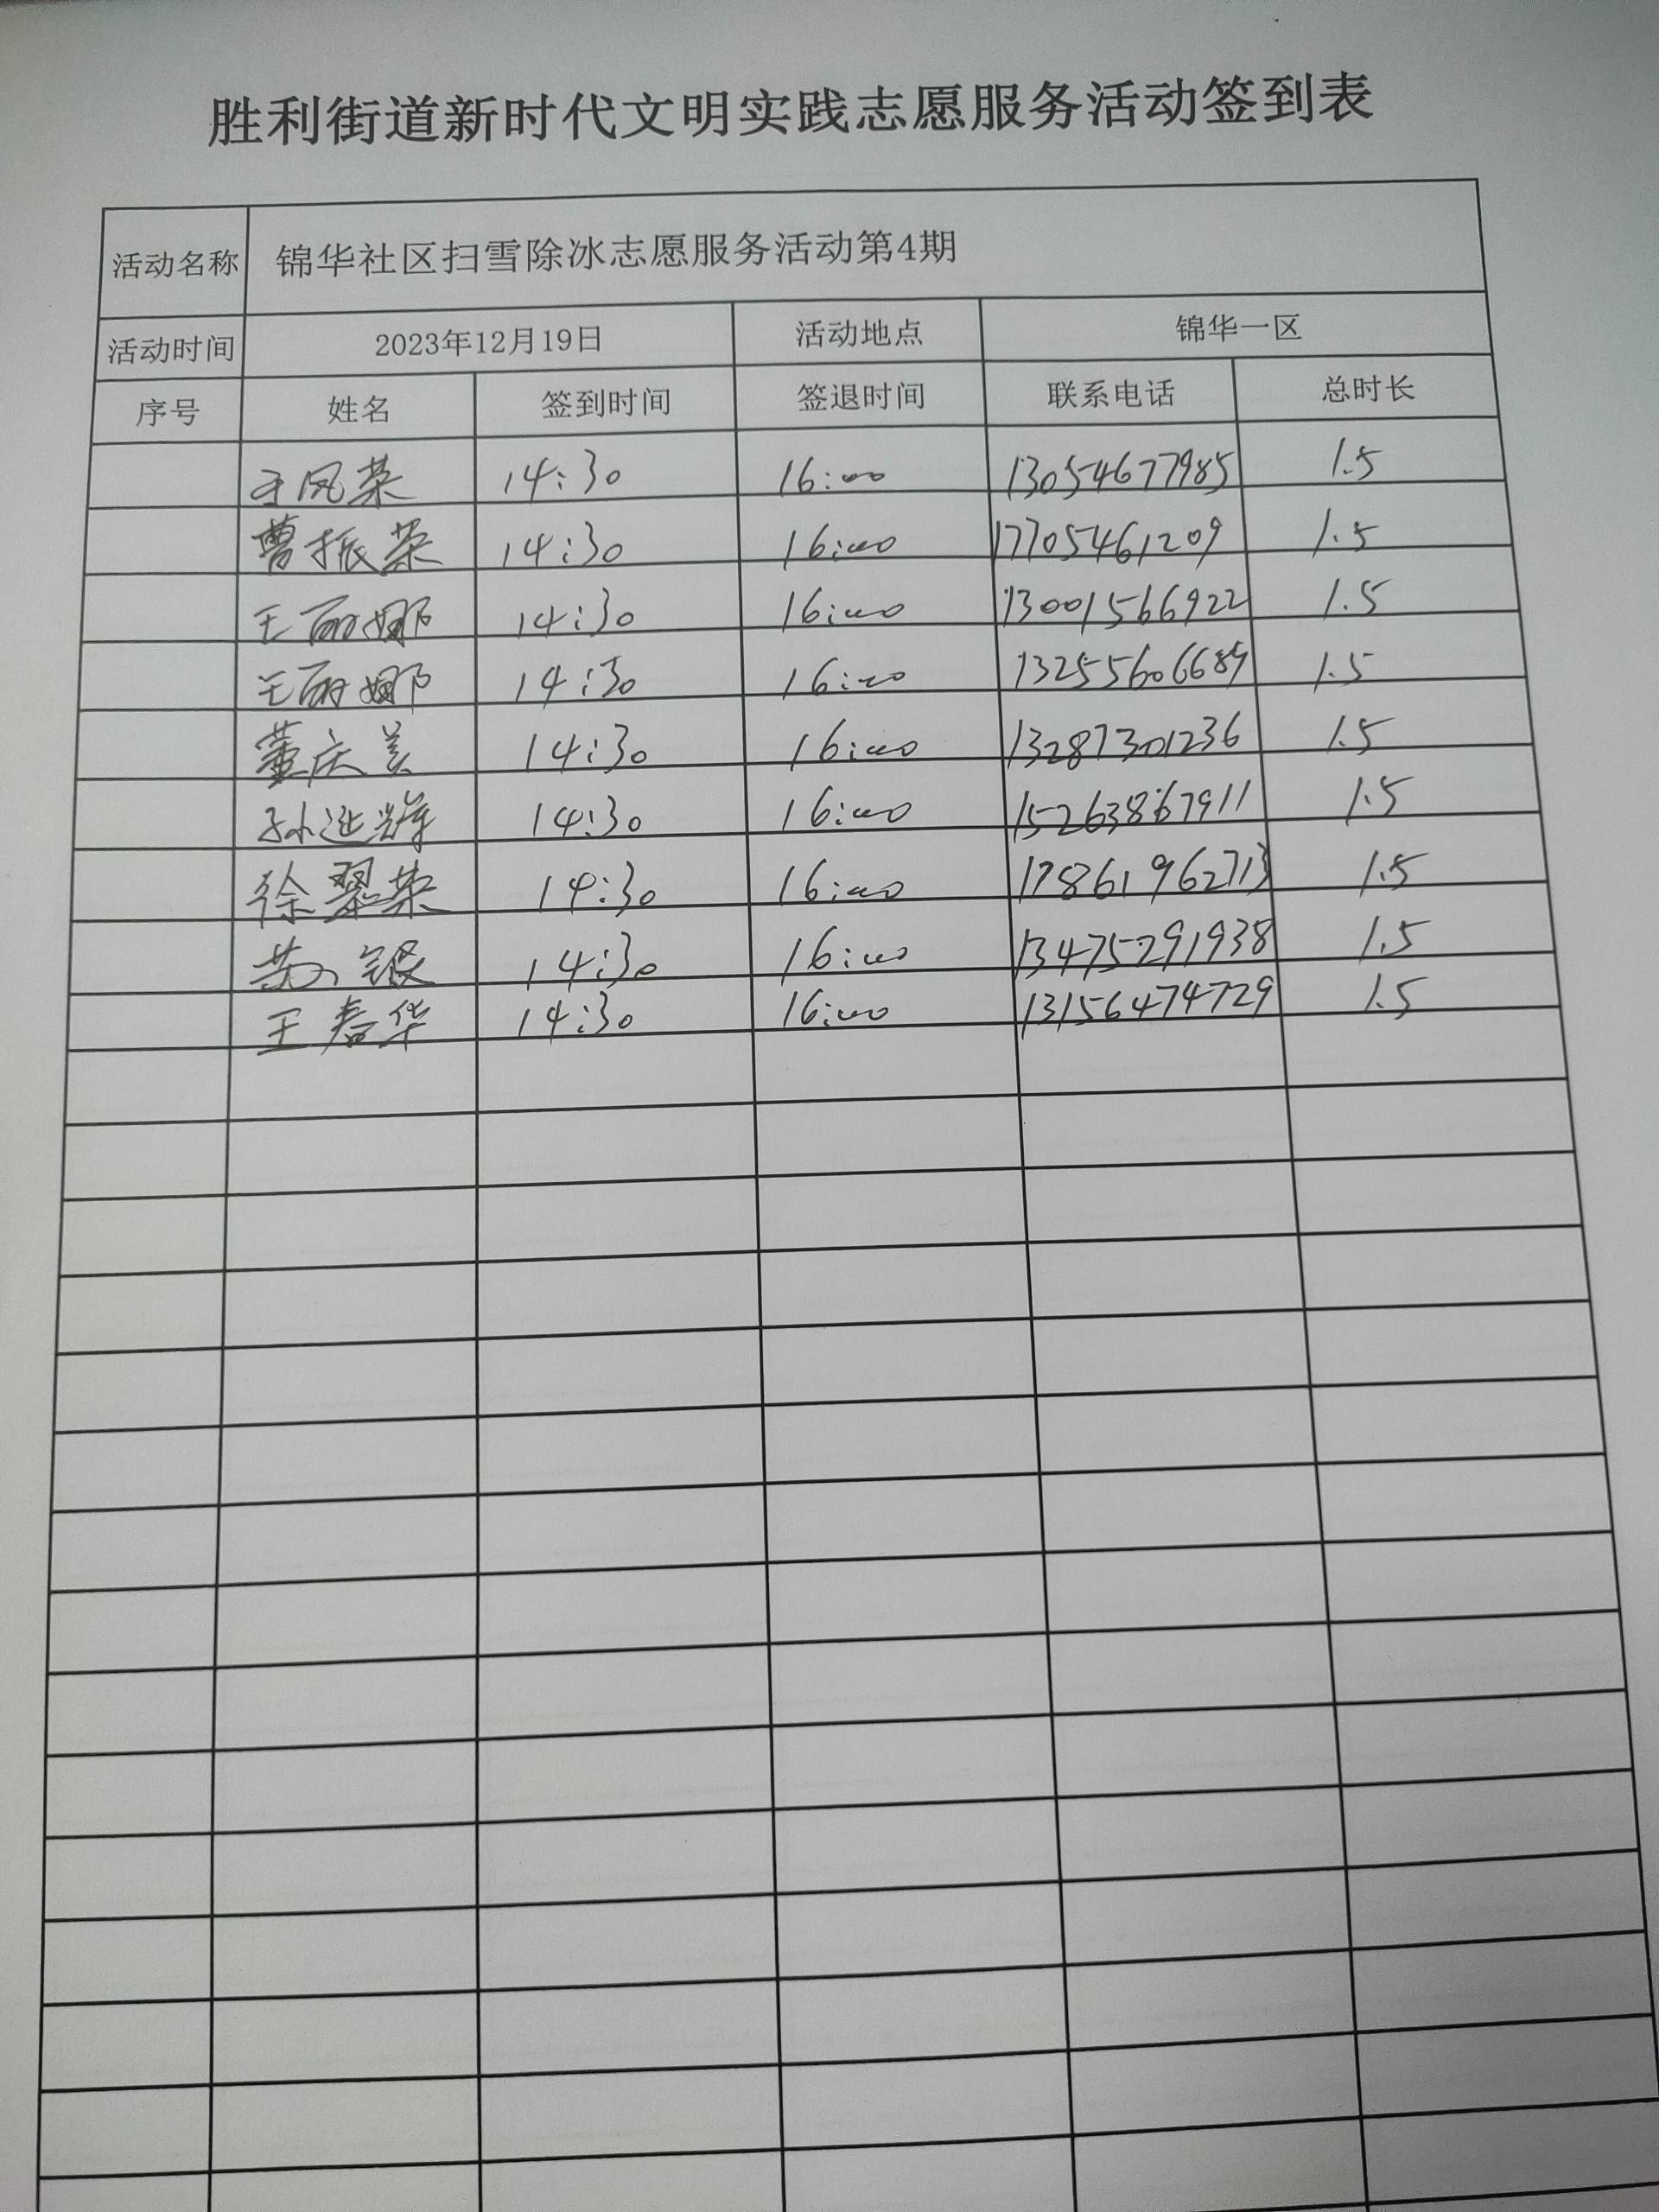 胜利街道新时代文明实践志愿服务活动签到表
活动名称 锦华社区扫雪除冰志愿服务活动第4期
活动时间 2023年12月19日 活动地点 锦华一区
序号 姓名 签到时间 签退时间 联系电话 总时长
于凤荣 14:30 16:00 13054677985 1.5
曹振荣 14:30 16:00 17705461209 1.5
王丽娜 14:30 16:00 13001566922 1.5
王丽娜 14:30 16:00 13255606689 1.5
董庆美 14:30 16:00 13287301236 1.5
孙 14:30 16:00 15263867911 1.5
徐翠荣 14:30 16:00 17861962713 1.5
苏银 14:30 16:00 13475291938 1.5
王春华 14:30 16:00 13156474729 1.5